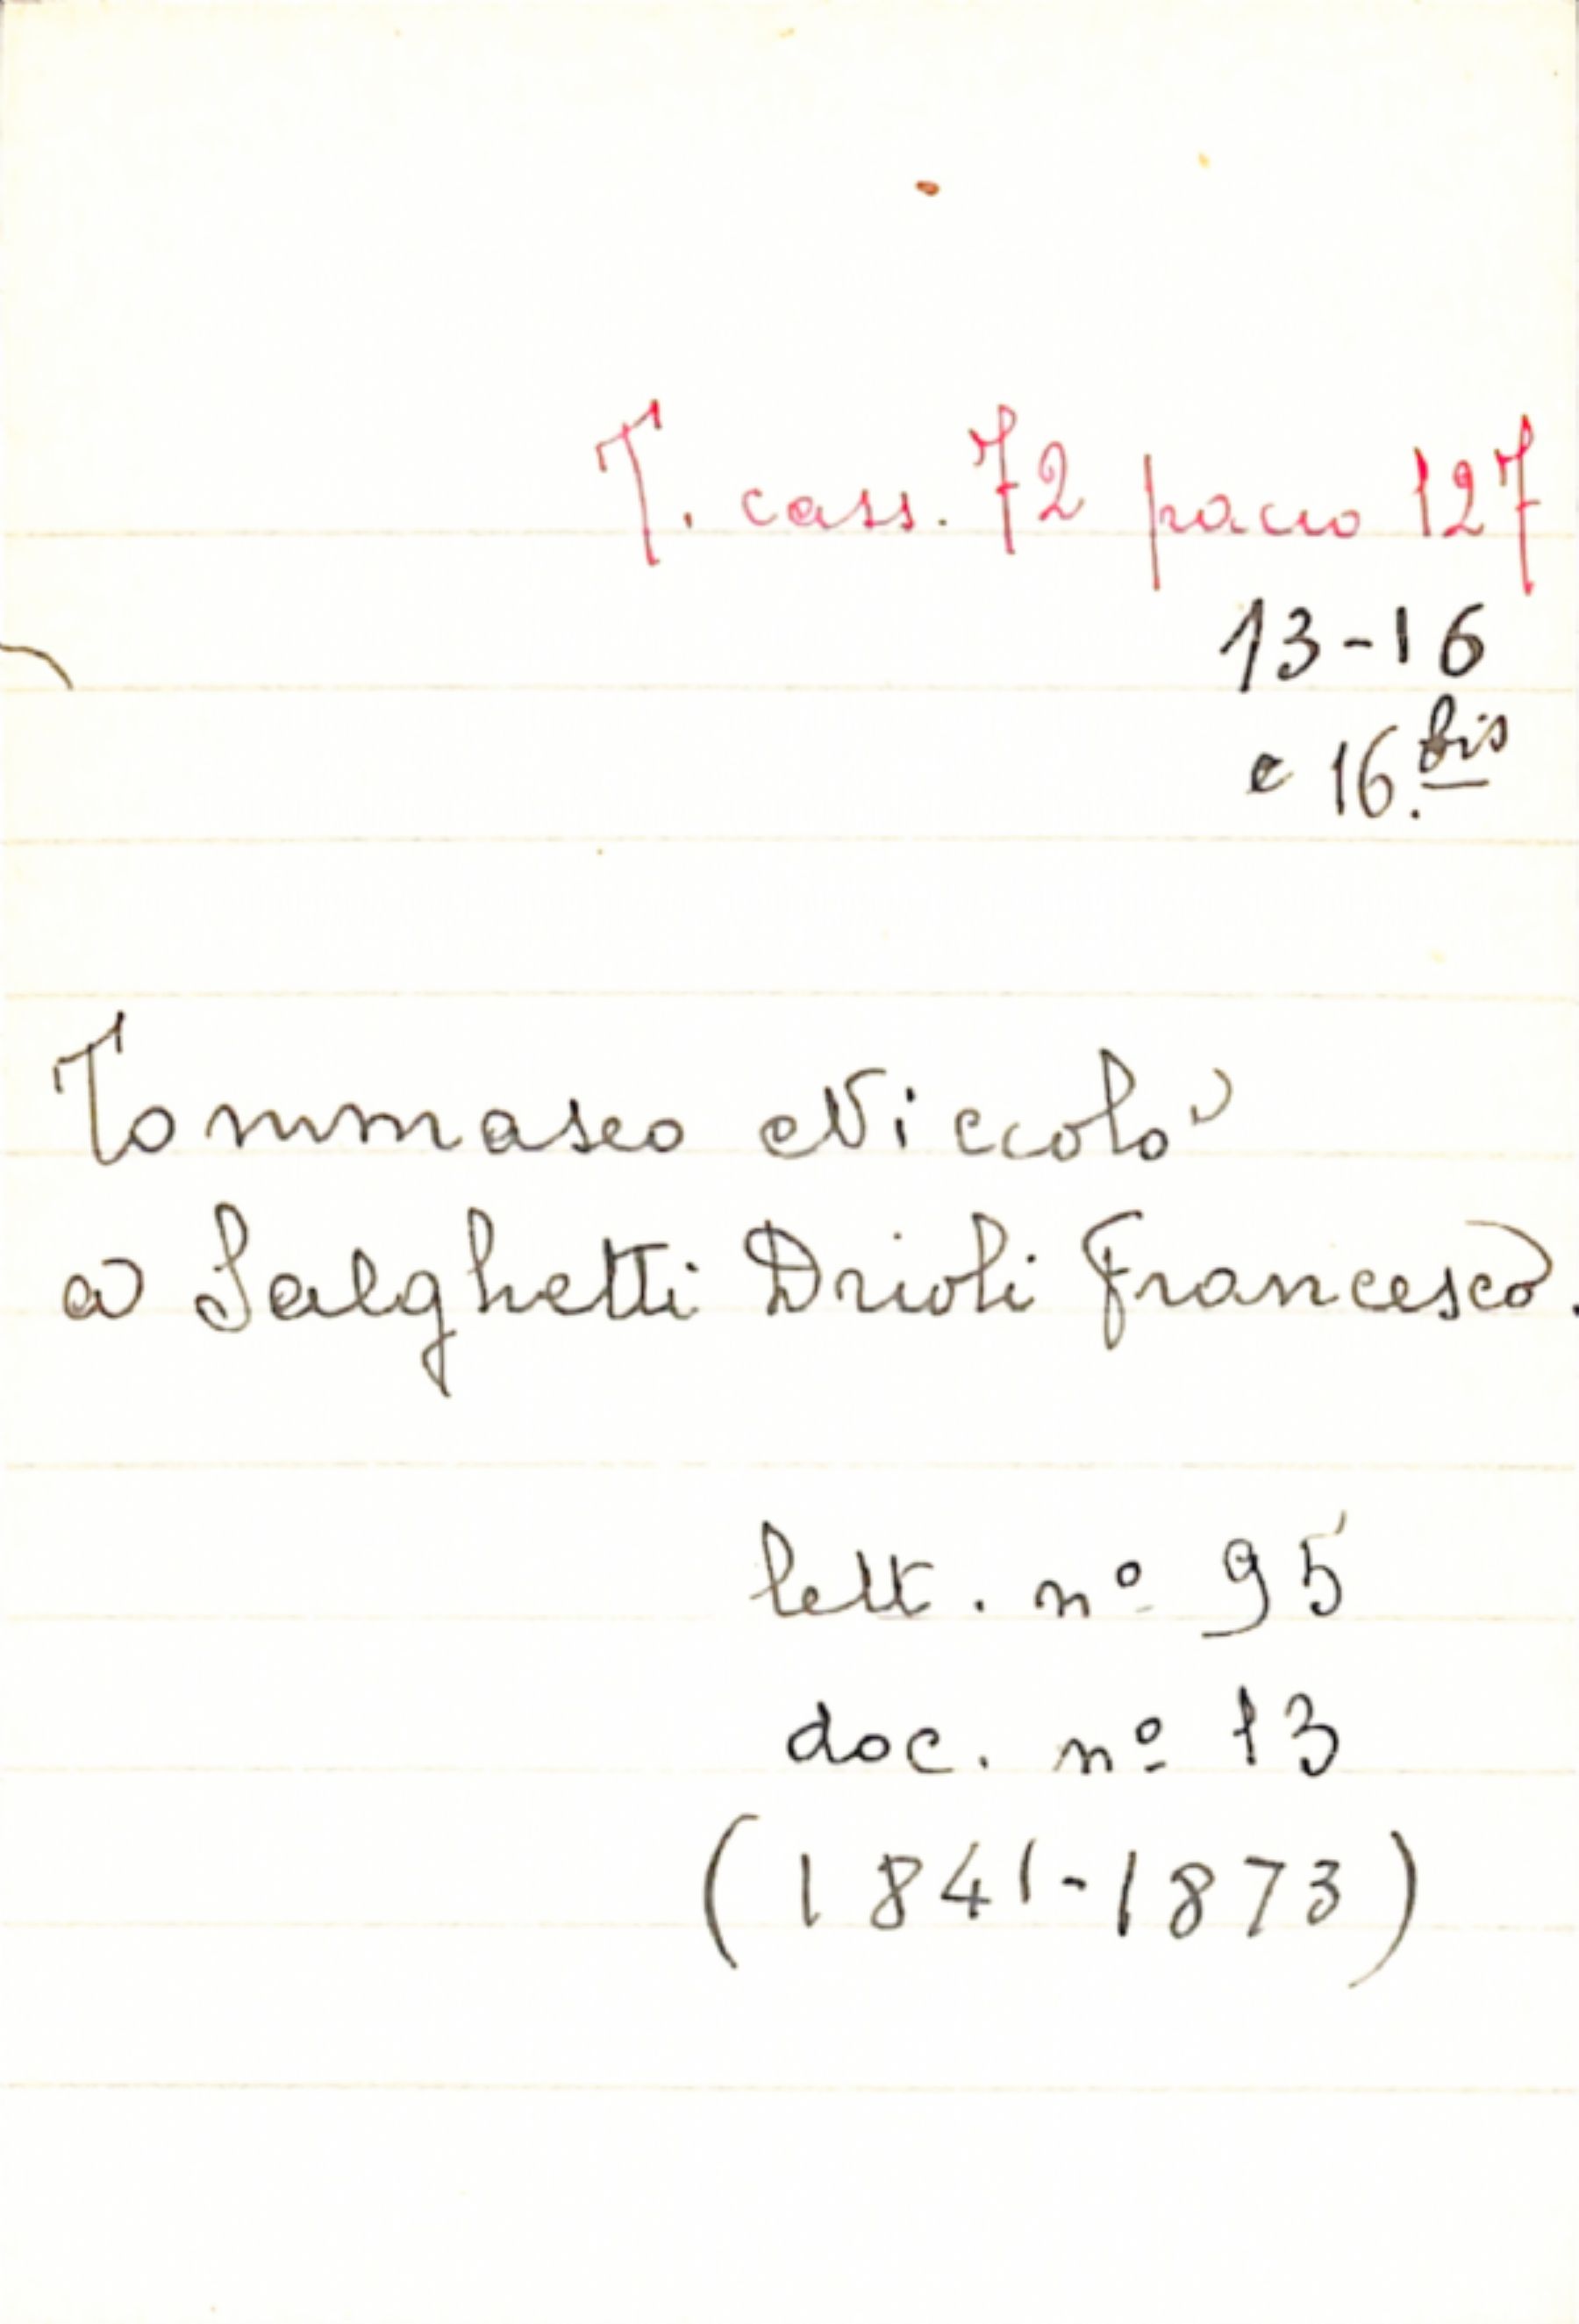 T. cass. 72 pacco 127
13-16
e 16.bis
Tommaseo Niccolò
a Salghetti Drioli Francesco.
lett. nº 95
doc. nº 13
(1841-1873)